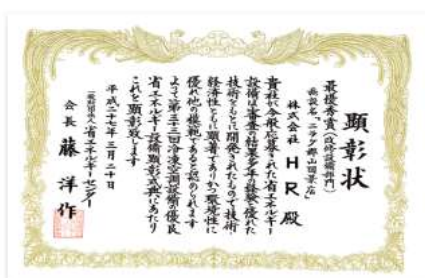 顕彰状
最優秀賞(改修設備部門)
株式会社 HR 殿
貴社が今般応募された省エネルギー
設備は審査の結果多年の経験と優れた
技術をもとに開発されたもので技術
経済性ともに顕著でありかつ環境性に
優れ他の模範であると認められます
よって第三十三回冷凍空調設備の優良
省エネルギー設備顕彰式典にあたり
これを顕彰致します
平成二十七年三月二十日
一般財団法人 省エネルギーセンター
会長 藤 洋作